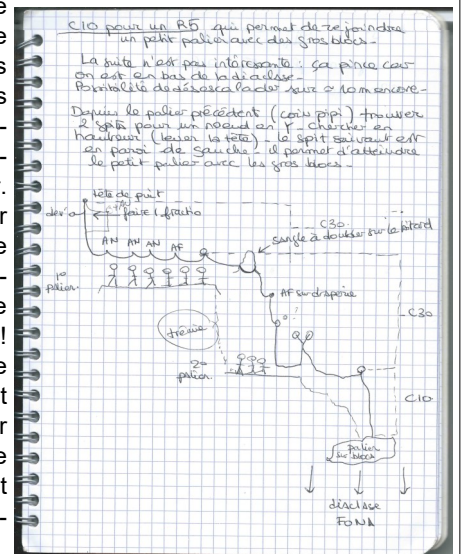 C10 pour un R5 qui permet de rejoindre
un petit palier avec des gros blocs -
La suite n'est pas intéressante : ça pince car
on est en bas de la diaclase -
Possibilité de désescalader sur ≈ 10m encore -
Depuis le palier précédent (coin pipi) trouver
2 spits pour un noeud en Y - chercher en
hauteur (lever la tête) - le spit suivant est
en paroi de gauche - il permet d'atteindre
le petit palier avec les gros blocs -
tête de puit
dev'
faire 1 fractio
AN AN AN AF
C30
sangle à doubler sur le bitard
1°
palier
AF sur draperie
C30
trémie
2°
palier
C10
palier
sur blocs
diaclase
FONA
e
e
s
s
-
-
r.
r
e
-
e
!
e
t
r
e
t
-